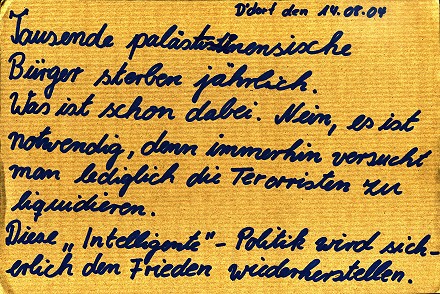 D'dorf den 14.08.04
Tausende palästinensische
Bürger sterben jährlich.
Was ist schon dabei. Nein, es ist
notwendig, denn immerhin versucht
man lediglich die Terorristen zu
liquidieren.
Diese „Intelligente"- Politik wird sich-
erlich den Frieden wiederherstellen.